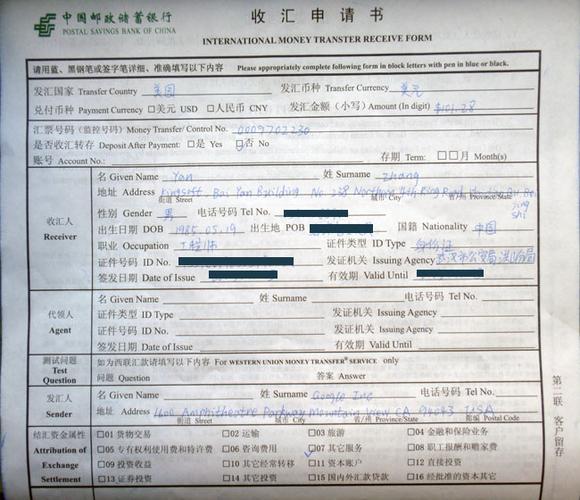 中国邮政储蓄银行
POSTAL SAVINGS BANK OF CHINA
收汇申请书
INTERNATIONAL MONEY TRANSTER RECEIVE FORM
请用蓝、黑钢笔或签字笔详细、准确填写以下内容 Please appropriately complete following form in block letters with pen in blue or black.
发汇国家 Transfer Country 美国 发汇币种 Transfer Currency 美元
兑付币种 Payment Currency □美元 USD □人民币 CNY 发汇金额（小写）Amount (In digit) $101.28
汇票号码（监控号码）Money Transfer/ Control No. 0009702230
是否收汇转存 Deposit After Payment: □是 Yes □否 No
账号 Account No.: 存期 Term: □□月 Month(s)
收汇人 Receiver
名 Given Name Yan 姓 Surname Zhang
地址 Address Kingsoft, Bai Yan Building No 238 Northern 4th Ring Road
街道 Street 城市 City 省/州 Province/State
性别 Gender 男 电话号码 Tel No.
出生日期 DOB 1985.05.19 出生地 POB 国籍 Nationality 中国
职业 Occupation 工程师 证件类型 ID Type 身份证
证件号码 ID No. 发证机关 Issuing Agency 武汉市公安局洪山分局
签发日期 Date of Issue 有效期 Valid Until
代领人 Agent
名 Given Name 姓 Surname 电话号码 Tel No.
证件类型 ID Type 发证机关 Issuing Agency
证件号码 ID No. 发证机关 Issuing Agency
签发日期 Date of Issue 有效期 Valid Until
测试问题 Test Question
如为西联汇款请填写以下内容 For WESTERN UNION MONEY TRANSFER® SERVICE only
问题 Question 答案 Answer
发汇人 Sender
名 Given Name 姓 Surname Google Inc 电话号码 Tel No.
地址 Address 1600 Amphitheatre Parkway Mountain View CA 94043 USA
街道 Street 城市 City 省/州 Province/State 邮编 Postal Code
结汇资金属性 Attribution of Exchange Settlement
□01 货物交易 □02 运输 □03 旅游 □04 金融和保险业务
□05 专有权利使用费和特许费 □06 咨询费用 □07 其他服务 □08 职工报酬和赡家费
□09 投资收益 □10 其它经常转移 □11 资本账户 □12 直接投资
□13 证券投资 □14 其它投资 □15 国内外汇贷款 □16 经批准的资本其它
第二联 客户留存